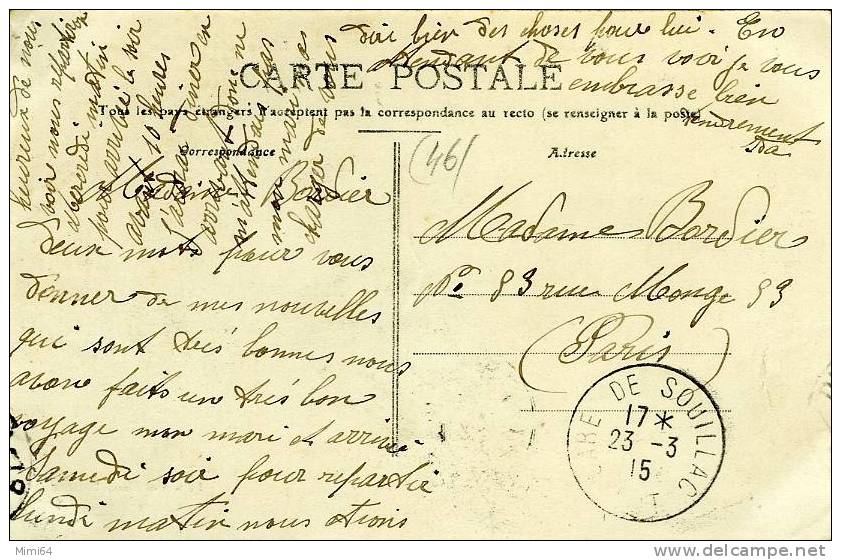 CARTE POSTALE
Tous les pays étrangers n'acceptent pas la correspondance au recto (se renseigner à la poste)
Correspondance
Adresse
(46)
Madame Bordier
deux mots pour vous
donner de mes nouvelles
qui sont très bonnes nous
avons faits un très bon
voyage mon mari et arrivé
Samedi soir pour repartir
lundi matin nous etions
heureux de nous
voir nous repartons
mercredi matin
pour arriver le soir
avant 10 heures
mon mari
charger de vous
dire bien des choses pour lui. En
attendant de vous voir je vous
embrasse bien
tendrement
Ida
Madame Bordier
No 83 rue Monge 83
(Paris)
GARE DE SOUILLAC
17*
23 -3
15
LOT
Mimi64
www.delcampe.net